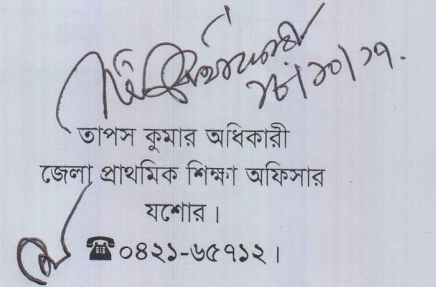 তাপস কুমার অধিকারী
জেলা প্রাথমিক শিক্ষা অফিসার
যশোর।
☎০৪২১-৬৫৭১২।